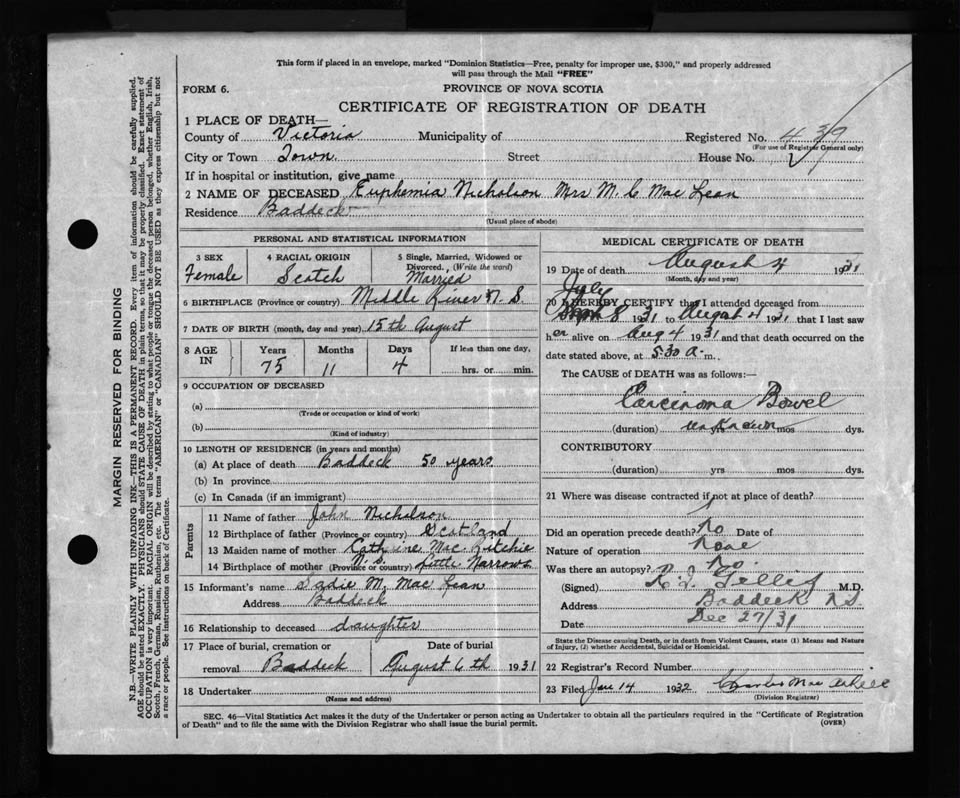 This form if placed in an envelope, marked "Dominion Statistics—Free, penalty for improper use, $300," and properly addressed
will pass through the Mail "FREE"
FORM 6.
PROVINCE OF NOVA SCOTIA
CERTIFICATE OF REGISTRATION OF DEATH
1 PLACE OF DEATH—
County of Victoria Municipality of Registered No. 439
(For use of Registrar General only)
City or Town Town Street House No.
If in hospital or institution, give name
2 NAME OF DECEASED Euphemia Nicholson Mrs M. C MacLean
Residence Baddeck
(Usual place of abode)
PERSONAL AND STATISTICAL INFORMATION
3 SEX 4 RACIAL ORIGIN 5 Single, Married, Widowed or Divorced, (Write the word)
Female Scotch Married
6 BIRTHPLACE (Province or country) Middle River N. S.
7 DATE OF BIRTH (month, day and year) 15th August
8 AGE IN Years Months Days If less than one day,
75 11 4 hrs. or min.
9 OCCUPATION OF DECEASED
(a)
(Trade or occupation or kind of work)
(b)
(Kind of industry)
10 LENGTH OF RESIDENCE (in years and months)
(a) At place of death Baddeck 50 years
(b) In province
(c) In Canada (if an immigrant)
Parents
11 Name of father John Nicholson
12 Birthplace of father (Province or country) Scotland
13 Maiden name of mother Catherine MacRitchie
14 Birthplace of mother (Province or country) N. S. Little Narrows
15 Informant's name Sadie M. MacLean
Address Baddeck
16 Relationship to deceased daughter
17 Place of burial, cremation or removal Baddeck Date of burial August 6th 1931
18 Undertaker
(Name and address)
MEDICAL CERTIFICATE OF DEATH
19 Date of death August 4 1931
(Month, day and year)
July
20 I HEREBY CERTIFY that I attended deceased from
8 1931 to August 4 1931 that I last saw
her alive on Aug 4 1931 and that death occurred on the
date stated above, at 5:30 a. m.
The CAUSE OF DEATH was as follows:—
Carcinoma Bowel
(duration) unknown mos dys.
CONTRIBUTORY
(duration) yrs mos dys.
21 Where was disease contracted if not at place of death?
Did an operation precede death? No Date of
Nature of operation None
Was there an autopsy? No.
(Signed) Gillis M.D.
Address Baddeck N.S.
Date Dec 27/31
State the Disease causing Death, or in death from Violent Causes, state (1) Means and Nature
of Injury, (2) whether Accidental, Suicidal or Homicidal.
22 Registrar's Record Number
23 Filed Jan 14 1932
(Division Registrar)
SEC. 46—Vital Statistics Act makes it the duty of the Undertaker or person acting as Undertaker to obtain all the particulars required in the "Certificate of Registration
of Death" and to file the same with the Division Registrar who shall issue the burial permit. (OVER)
MARGIN RESERVED FOR BINDING
N.B.—WRITE PLAINLY WITH UNFADING INK—THIS IS A PERMANENT RECORD. Every item of information should be carefully supplied.
AGE should be stated EXACTLY. PHYSICIANS should STATE CAUSE OF DEATH in plain terms, so that it may be properly classified. Exact statement of
OCCUPATION is very important. RACIAL ORIGIN will be described by stating to what people or tongue the deceased person belonged, whether English, Irish,
Scotch, French, German, Russian, Ruthenian, etc. The terms "AMERICAN" or "CANADIAN" SHOULD NOT BE USED as they express citizenship but not
a race or people. See instructions on back of Certificate.